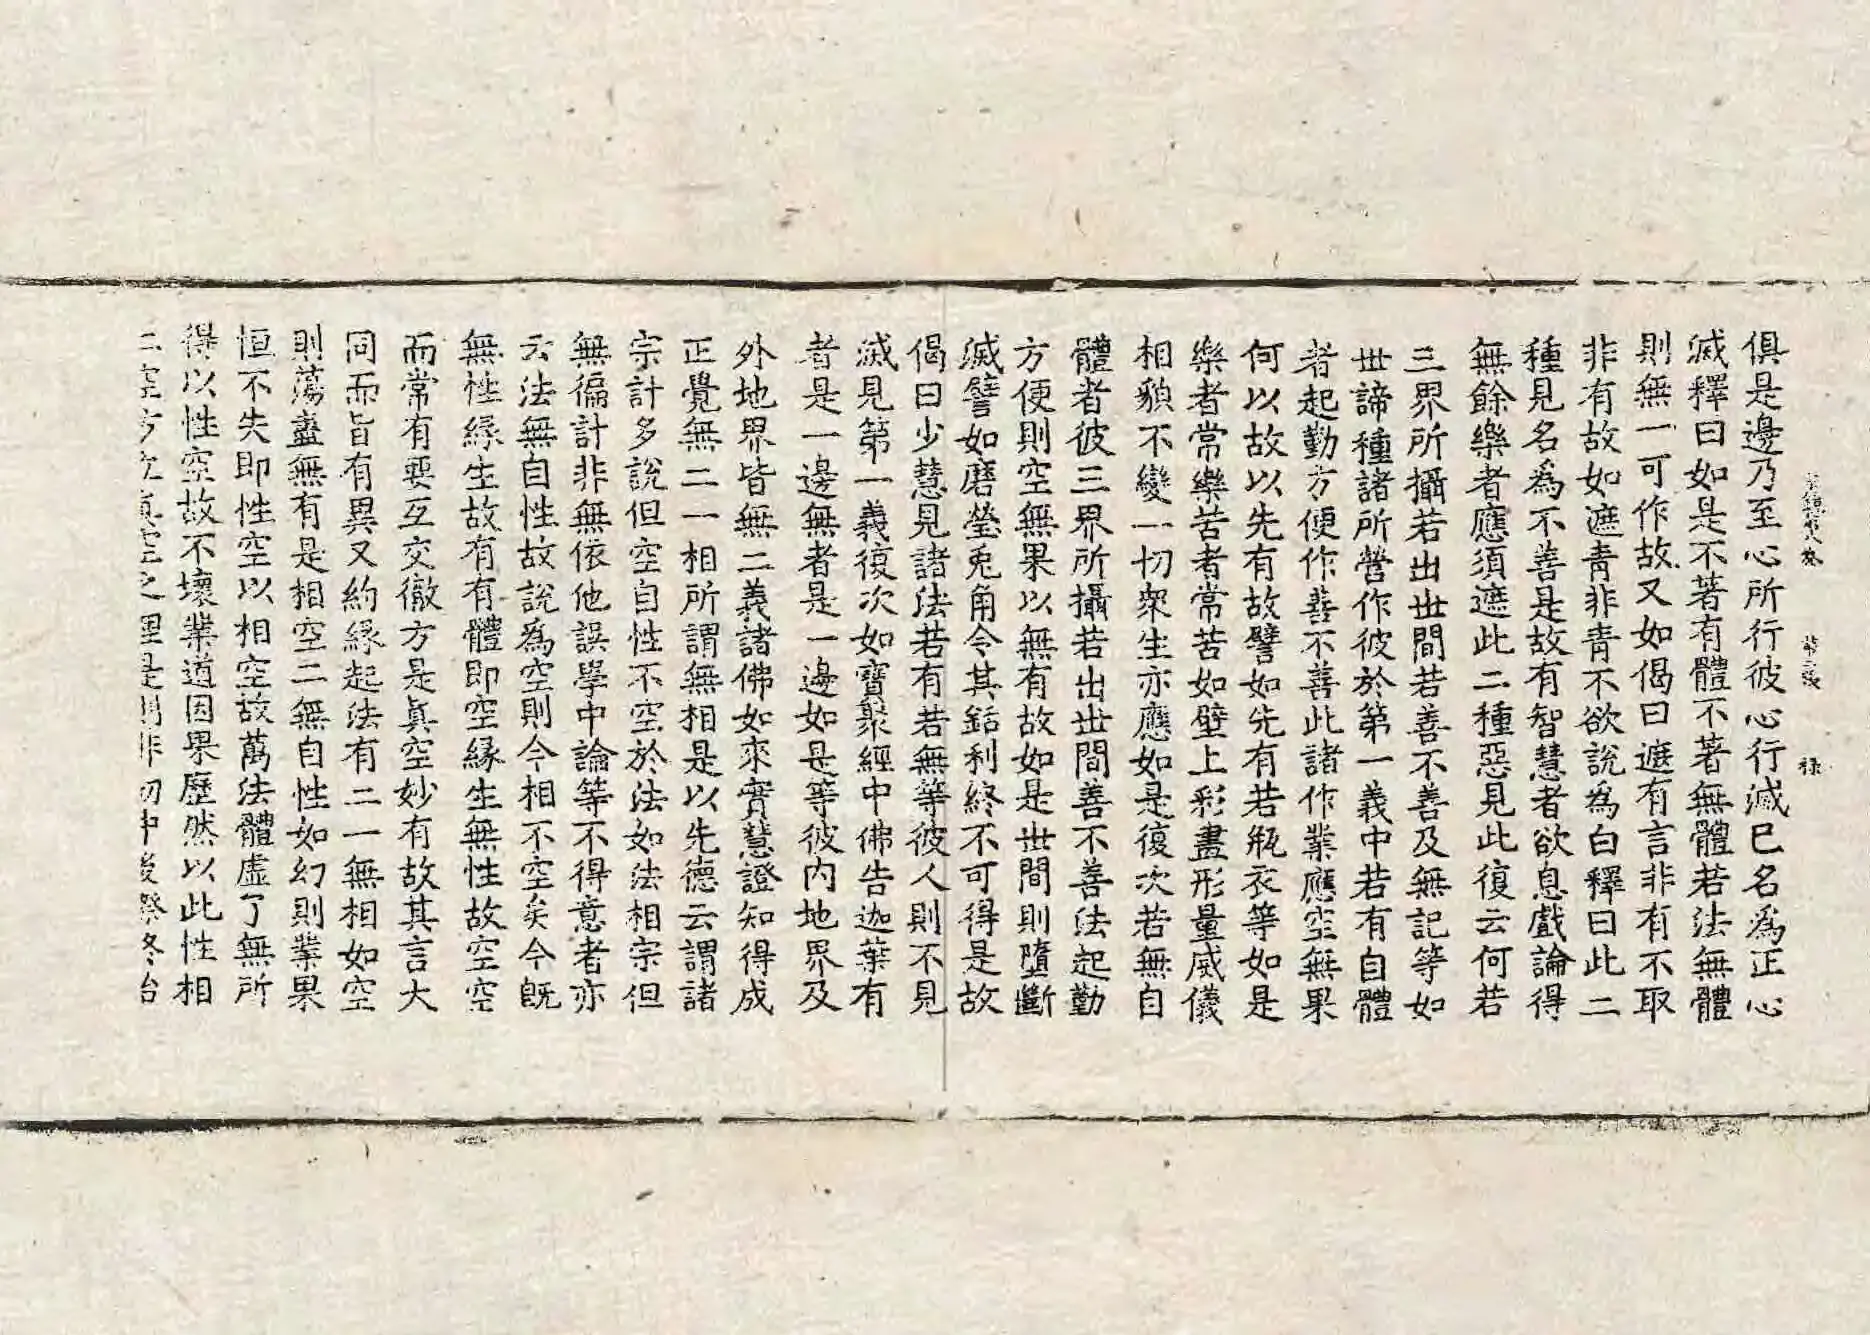 宗鏡第八卷 第三張 祿
俱是邊乃至心所行彼心行滅已名為正心
滅釋曰如是不著有體不著無體若法無體
則無一可作故又如偈曰遮有言非有不取
非有故如遮青非青不欲說為白釋曰此二
種見名為不善是故有智慧者欲息戲論得
無餘樂者應須遮此二種惡見此復云何若
三界所攝若出世間若善不善及無記等如
世諦種諸所營作彼於第一義中若有自體
者起勤方便作善不善此諸作業應空無果
何以故以先有故譬如先有若瓶衣等如是
樂者常樂苦者常苦如壁上彩畫形量威儀
相貌不變一切眾生亦應如是復次若無自
體者彼三界所攝若出世間善不善法起勤
方便則空無果以無有故如是世間則墮斷
滅譬如磨瑩兔角令其銛利終不可得是故
偈曰少慧見諸法若有若無等彼人則不見
滅見第一義復次如寶聚經中佛告迦葉有
者是一邊無者是一邊如是等彼內地界及
外地界皆無二義諸佛如來實慧證知得成
正覺無二一相所謂無相是以先德云謂諸
宗計多說但空自性不空於法如法相宗但
無徧計非無依他誤學中論等不得意者亦
云法無自性故說為空則令相不空矣今既
無性緣生故有有體即空緣生無性故空空
而常有要互交徹方是真空妙有故其言大
同而皆有異又約緣起法有二一無相如空
則蕩盡無有是相空二無自性如幻則業果
恒不失即性空以相空故萬法體虛了無所
得以性空故不壞業道因果歷然以此性相
二空方立真空之理是